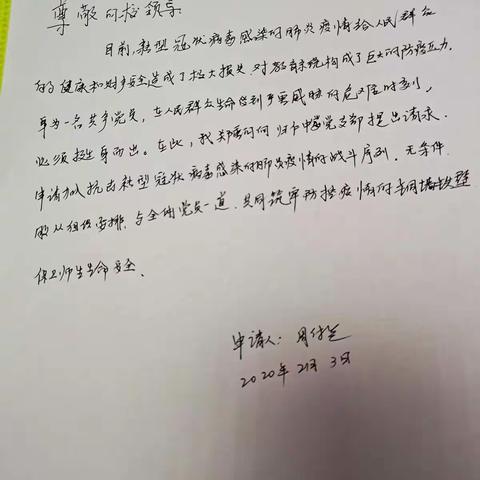 尊敬的校领导
目前,新型冠状病毒感染的肺炎疫情给人民群众
的健康和财产安全造成了极大损失,对教育系统构成了巨大的防疫压力.
身为一名共产党员,在人民群众生命受到严重威胁的危难时刻,
必须挺身而出。在此,我郑重的向归中党支部提出请求.
申请加入抗击新型冠状病毒感染的肺炎疫情的战斗序列.无条件
服从组织安排,与全体党员一道,共同筑牢防控疫情的铜墙铁壁
保卫师生生命安全.
申请人:周
2020年2月3日